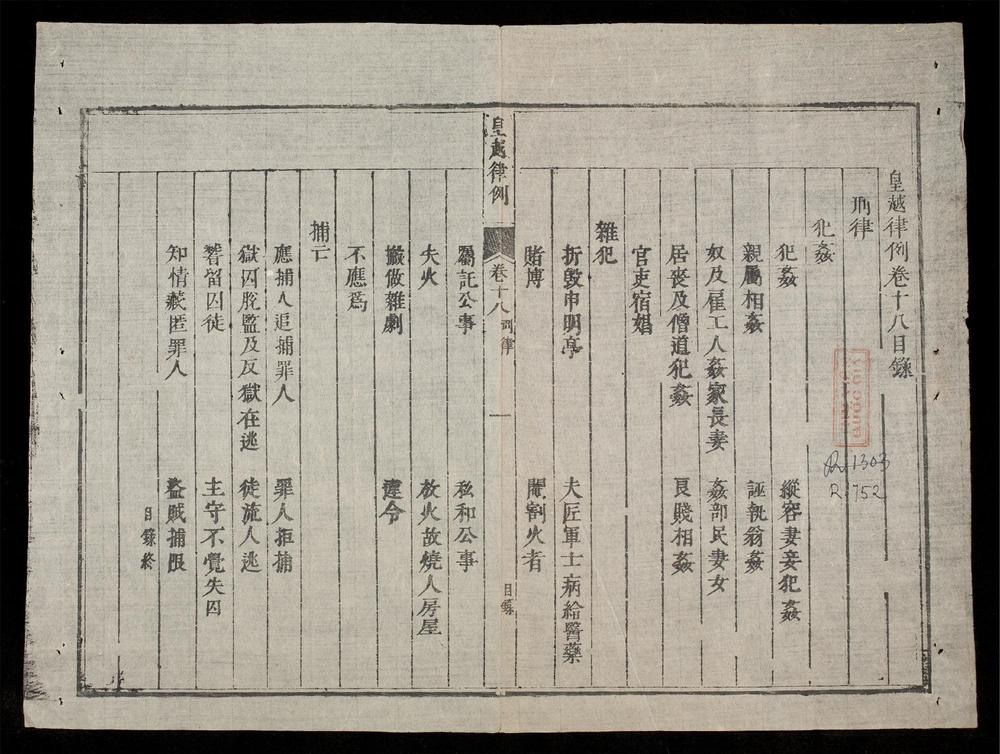 皇越律例卷十八目錄
刑律
犯姦
犯姦 縱容妻妾犯姦
親屬相姦 誣執翁姦
奴及雇工人姦家長妻 姦部民妻女
居喪及僧道犯姦 良賤相姦
官吏宿娼
雜犯
折毀申明亭 夫匠軍士病給醫藥
賭博 閹割火者
皇越律例 卷十八 刑律 一 目錄
囑託公事 私和公事
失火 放火故燒人房屋
搬做雜劇 違令
不應為
捕亡
應捕人追捕罪人 罪人拒捕
獄囚脫監及反獄在逃 徒流人逃
稽留囚徒 主守不覺失囚
知情藏匿罪人 盜賊捕限
目錄終
R.1303
R.752